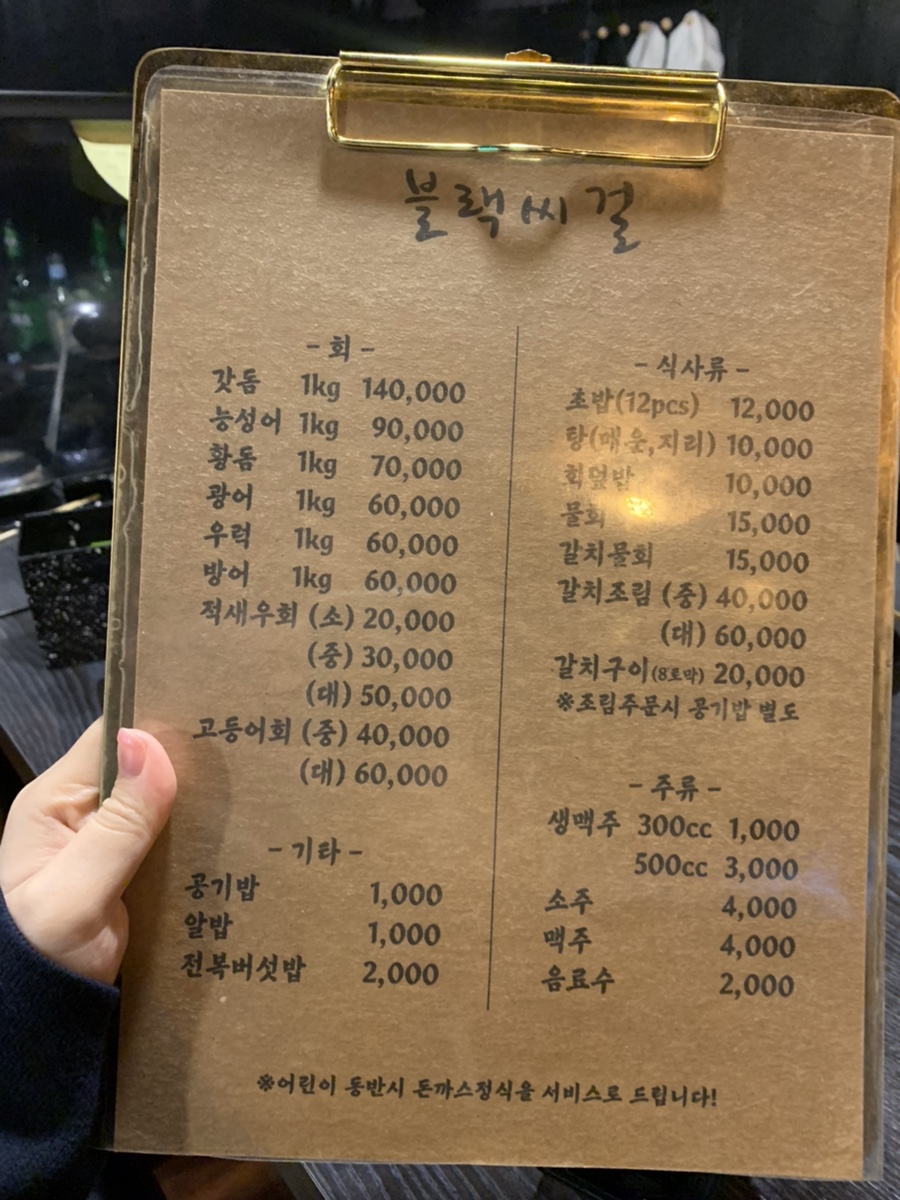 블랙씨걸
- 회 -
갓돔 1kg 140,000
능성어 1kg 90,000
황돔 1kg 70,000
광어 1kg 60,000
우럭 1kg 60,000
방어 1kg 60,000
적새우회 (소) 20,000
(중) 30,000
(대) 50,000
고등어회 (중) 40,000
(대) 60,000
- 기타 -
공기밥 1,000
알밥 1,000
전복버섯밥 2,000
- 식사류 -
초밥(12pcs) 12,000
탕(매운,지리) 10,000
회덮밥 10,000
물회 15,000
갈치물회 15,000
갈치조림 (중) 40,000
(대) 60,000
갈치구이(8토막) 20,000
※조림주문시 공기밥 별도
- 주류 -
생맥주 300cc 1,000
500cc 3,000
소주 4,000
맥주 4,000
음료수 2,000
※어린이 동반시 돈까스정식을 서비스로 드립니다!